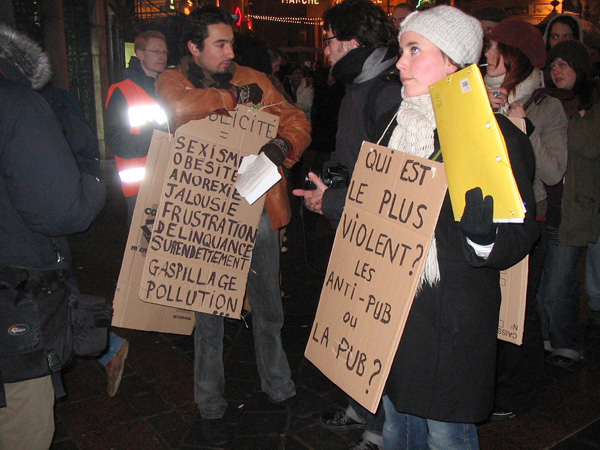 MARCHE
PUBLICITÉ
=
SEXISME
OBÉSITÉ
ANOREXIE
JALOUSIE
FRUSTRATION
DELINQUANCE
SURENDETTEMENT
GASPILLAGE
POLLUTION...
QUI EST
LE PLUS
VIOLENT?
LES
ANTI-PUB
OU
LA PUB?